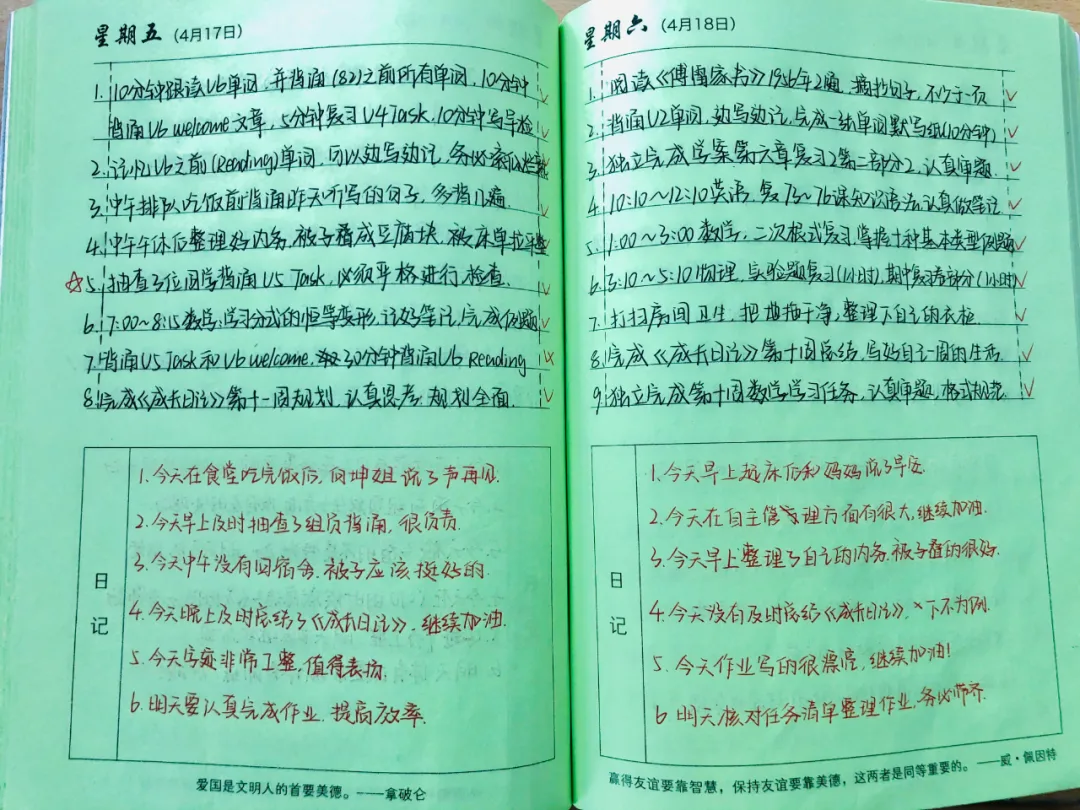 星期五（4月17日）
1. 10分钟跟读U6单词,并背诵(82)之前所有单词,10分钟
背诵U6 welcome文章,5分钟复习U4Task,10分钟写导检
2. 记忆U6之前(Reading)单词,可以边写边记,务必
3. 中午排队吃饭前背诵昨天听写的句子,多背几遍.
4. 中午午休后整理好内务,被子叠成豆腐块,被床单拉平整
☆5. 抽查3位同学背诵U5 Task,必须严格进行检查.
6. 7:00~8:15数学:学习分式的恒等变形,记好笔记,完成例题.
7. 背诵U5 Task和U6 welcome. 30分钟背诵U6 Reading
8. 完成《成长日记》第十一周规划.认真思考.规划全面.
日记
1. 今天在食堂吃完饭后,向坤姐说了声再见.
2. 今天早上及时抽查了组员背诵,很负责.
3. 今天中午没有回宿舍.被子应该挺好的.
4. 今天晚上及时总结了《成长日记》.继续加油.
5. 今天字迹非常工整,值得表扬.
6. 明天要认真完成作业.提高效率.
爱国是文明人的首要美德。——拿破仑
星期六（4月18日）
1. 阅读《傅雷家书》1956年2遍,摘抄句子,不少于一页
2. 背诵U2单词,边写边记,完成一张单词默写纸(10分钟)
3. 独立完成学案第六章复习2第二部分2,认真审题.
4. 10:10~12:10英语,复73~76课知识语法,认真做笔记.
5. 1:00~3:00数学,二次根式复习,掌握十种基本类型例题
6. 3:10~5:10物理,实验题复习(1小时),期中复习卷部分(1小时)
7. 打扫房间卫生,把地拖干净,整理下自己的衣柜.
8. 完成《成长日记》第十周总结,写好自己一周的生活.
9. 独立完成第十周数学学习任务,认真审题,格式规范.
日记
1. 今天早上起床后和妈妈说了早安.
2. 今天在自主管理方面有很大,继续加油.
3. 今天早上整理了自己的内务.被子叠的很好.
4. 今天没有及时总结《成长日记》,下不为例.
5. 今天作业写的很漂亮,继续加油!
6 明天核对任务清单整理作业,务必带齐.
赢得友谊要靠智慧，保持友谊要靠美德，这两者是同等重要的。——威·佩因特